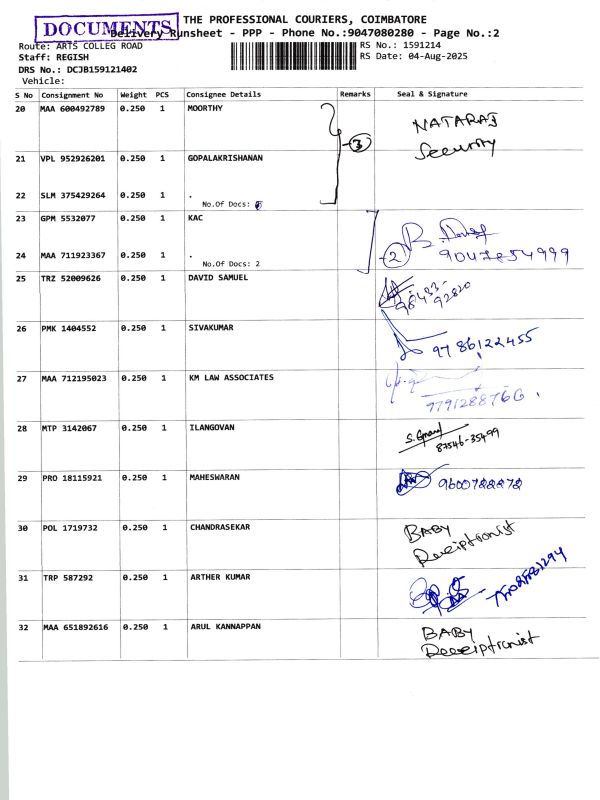 DOCUMENTS
THE PROFESSIONAL COURIERS, COIMBATORE
Delivery Runsheet - PPP - Phone No.:9047080280 - Page No.:2
Route: ARTS COLLEG ROAD
RS No.: 1591214
Staff: REGISH
RS Date: 04-Aug-2025
DRS No.: DCJB159121402
Vehicle:
S No Consignment No Weight PCS Consignee Details Remarks Seal & Signature
20 MAA 600492789 0.250 1 MOORTHY
NATARAJ
Security
-3
21 VPL 952926201 0.250 1 GOPALAKRISHANAN
22 SLM 375429264 0.250 1 .
No.Of Docs:
23 GPM 5532077 0.250 1 KAC
-2
24 MAA 711923367 0.250 1 .
No.Of Docs: 2
25 TRZ 52009626 0.250 1 DAVID SAMUEL
98433-
92820
26 PMK 1404552 0.250 1 SIVAKUMAR
97 86122455
27 MAA 712195023 0.250 1 KM LAW ASSOCIATES
9791288766
28 MTP 3142067 0.250 1 ILANGOVAN
87546-35499
29 PRO 18115921 0.250 1 MAHESWARAN
30 POL 1719732 0.250 1 CHANDRASEKAR
BABY
Receiptionist
31 TRP 587292 0.250 1 ARTHER KUMAR
32 MAA 651892616 0.250 1 ARUL KANNAPPAN
BABY
Receiptronist